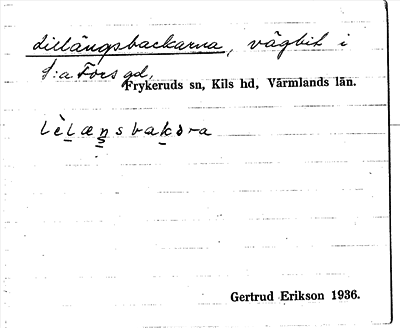 Lillängsbackarna, vägbit i
S:a Fors gd,
Frykeruds sn, Kils hd, Värmlands län.
lèlæŋsbakɒra
Gertrud Erikson 1936.